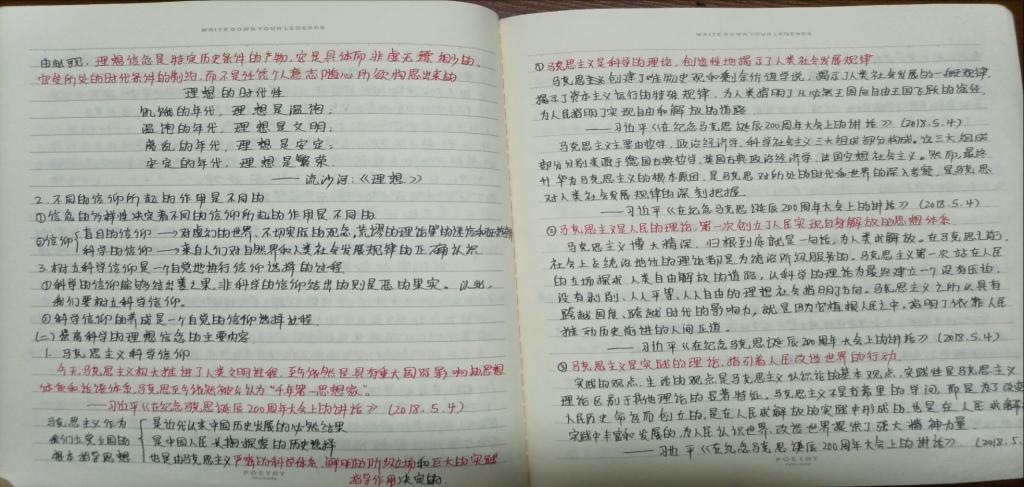 WRITE DOWN YOUR LEGENDS
由此可见，理想信念是特定历史条件的产物，它是具体而非虚无缥缈的。
它受所处的时代条件的制约，而不是凭个人意志随心所欲构思出来的
理想的时代性
饥饿的年代，理想是温饱；
温饱的年代，理想是文明；
离乱的年代，理想是安定；
安定的年代，理想是繁荣.
——流沙河：《理想》
2. 不同的信仰所起的作用是不同的
①信念的多样性决定着不同的信仰所起的作用是不同的
②信仰 盲目的信仰→对虚幻的世界、不切实际的观念、荒谬的理论的迷信和狂热崇拜
科学的信仰→来自人们对自然界和人类社会发展规律的正确认识
3. 树立科学信仰是一个自觉地进行信仰选择的过程
①科学信仰能够结出善之果，非科学的信仰结出的则是恶的果实。以此，
我们要树立科学信仰。
②科学信仰的养成是一个自觉的信仰选择过程.
(二)崇高科学的理想信念的主要内容
1. 马克思主义科学信仰
今天，马克思主义极大推进了人类文明进程，至今依然是具有重大国际影响的思想
体系和话语体系，马克思至今依然被公认为“千年第一思想家”。
——习近平《在纪念马克思诞辰200周年大会上的讲话》(2018.5.4)
马克思主义作为 是近代以来中国历史发展的必然结果
我们立党立国的 是中国人民长期探索的历史选择
根本指导思想 也是由马克思主义严密的科学体系、鲜明的阶级立场和巨大的实践
指导作用决定的.
POETRY
WRITE DOWN YOUR LEGENDS
①马克思主义是科学的理论，创造性地揭示了人类社会发展规律
马克思主义创建了唯物史观和剩余价值学说，揭示了人类社会发展的一般规律，
揭示了资本主义运行的特殊规律，为人类指明了从必然王国向自由王国飞跃的途径，
为人民指明了实现自由和解放的道路
——习近平《在纪念马克思诞辰200周年大会上的讲话》(2018.5.4)
马克思主义主要由哲学、政治经济学、科学社会主义三大组成部分构成。这三大组成
部分分别来源于德国古典哲学、英国古典政治经济学、法国空想社会主义。然而，最终
升华为马克思主义的根本原因，是马克思对所处的时代和世界的深入考察，是马克思
对人类社会发展规律的深刻把握.
——习近平《在纪念马克思诞辰200周年大会上的讲话》(2018.5.4)
②马克思主义是人民的理论，第一次创立了人民实现自身解放的思想体系
马克思主义博大精深，归根到底就是一句话，为人类求解放。在马克思之前，
社会上占统治地位的理论都是为统治阶级服务的。马克思主义第一次站在人民
的立场探求人类自由解放的道路，以科学的理论为最终建立一个没有压迫、
没有剥削、人人平等、人人自由的理想社会指明了方向。马克思主义之所以具有
跨越国度、跨越时代的影响力，就是因为它植根人民之中，指明了依靠人民
推动历史前进的人间正道。
——习近平《在纪念马克思诞辰200周年大会上的讲话》(2018.5.4)
③马克思主义是实践的理论，指引着人民改造世界的行动.
实践的观点、生活的观点是马克思主义认识论的基本观点，实践性是马克思主义
理论区别于其他理论的显著特征。马克思主义不是书斋里的学问，而是为了改变
人民历史命运而创立的，是在人民求解放的实践中形成的，也是在人民求解放
实践中丰富和发展的，为人民认识世界、改造世界提供了强大精神力量.
——习近平《在纪念马克思诞辰200周年大会上的讲话》(2018.5.
POETRY